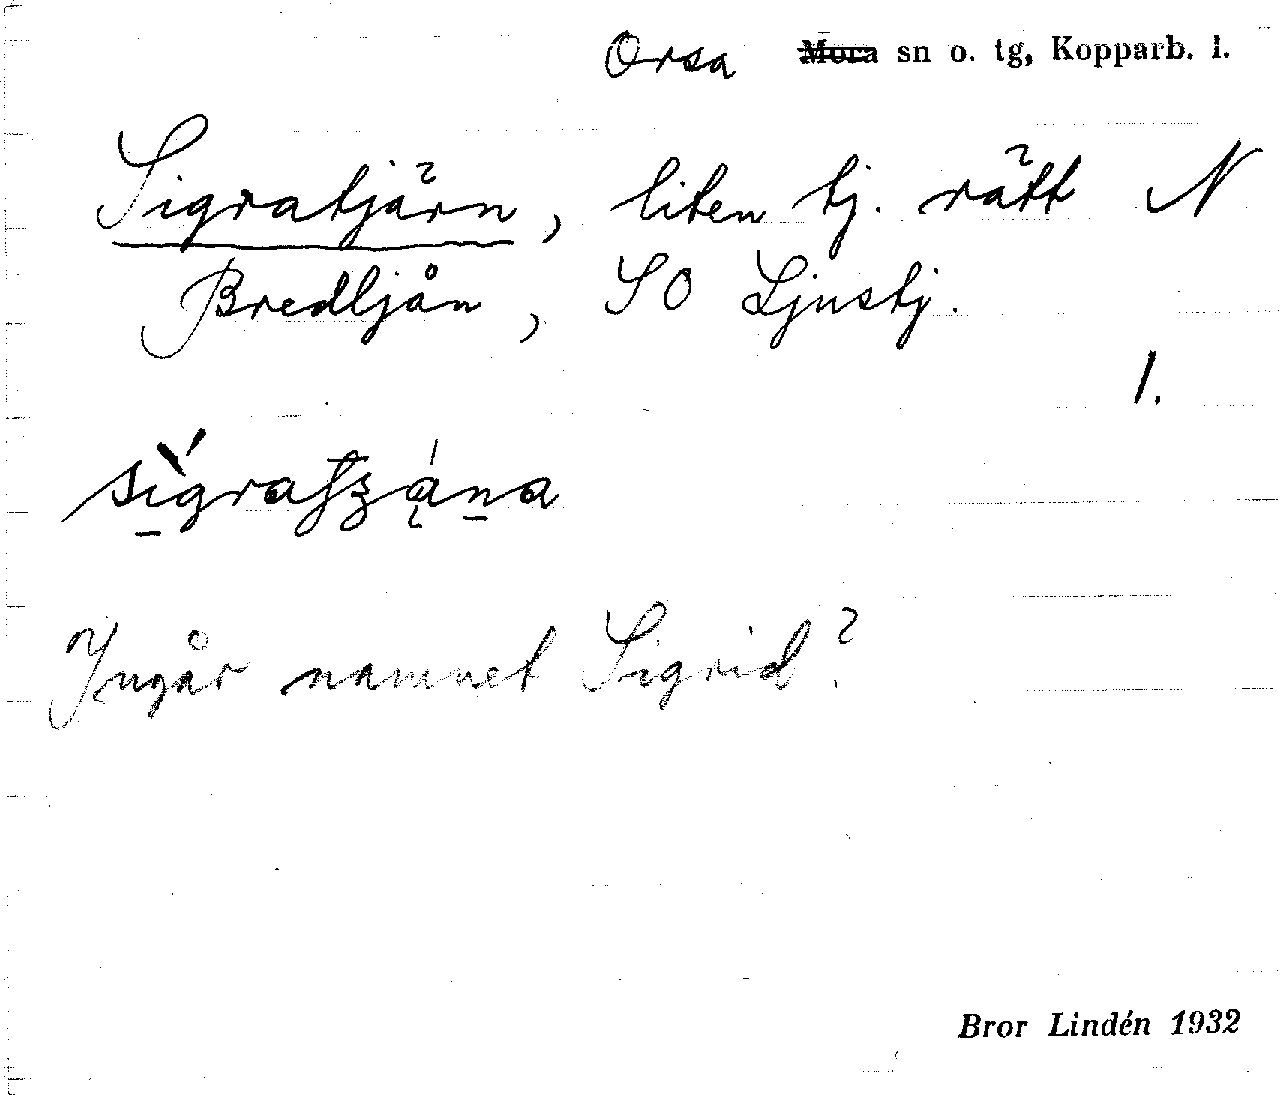 Orsa Mora sn o. tg, Kopparb. l.
Sigratjärn, liten tj. rätt N
Bredljån, SO Ljustj.
1.
Ingår namnet Sigrid?
Bror Lindén 1932